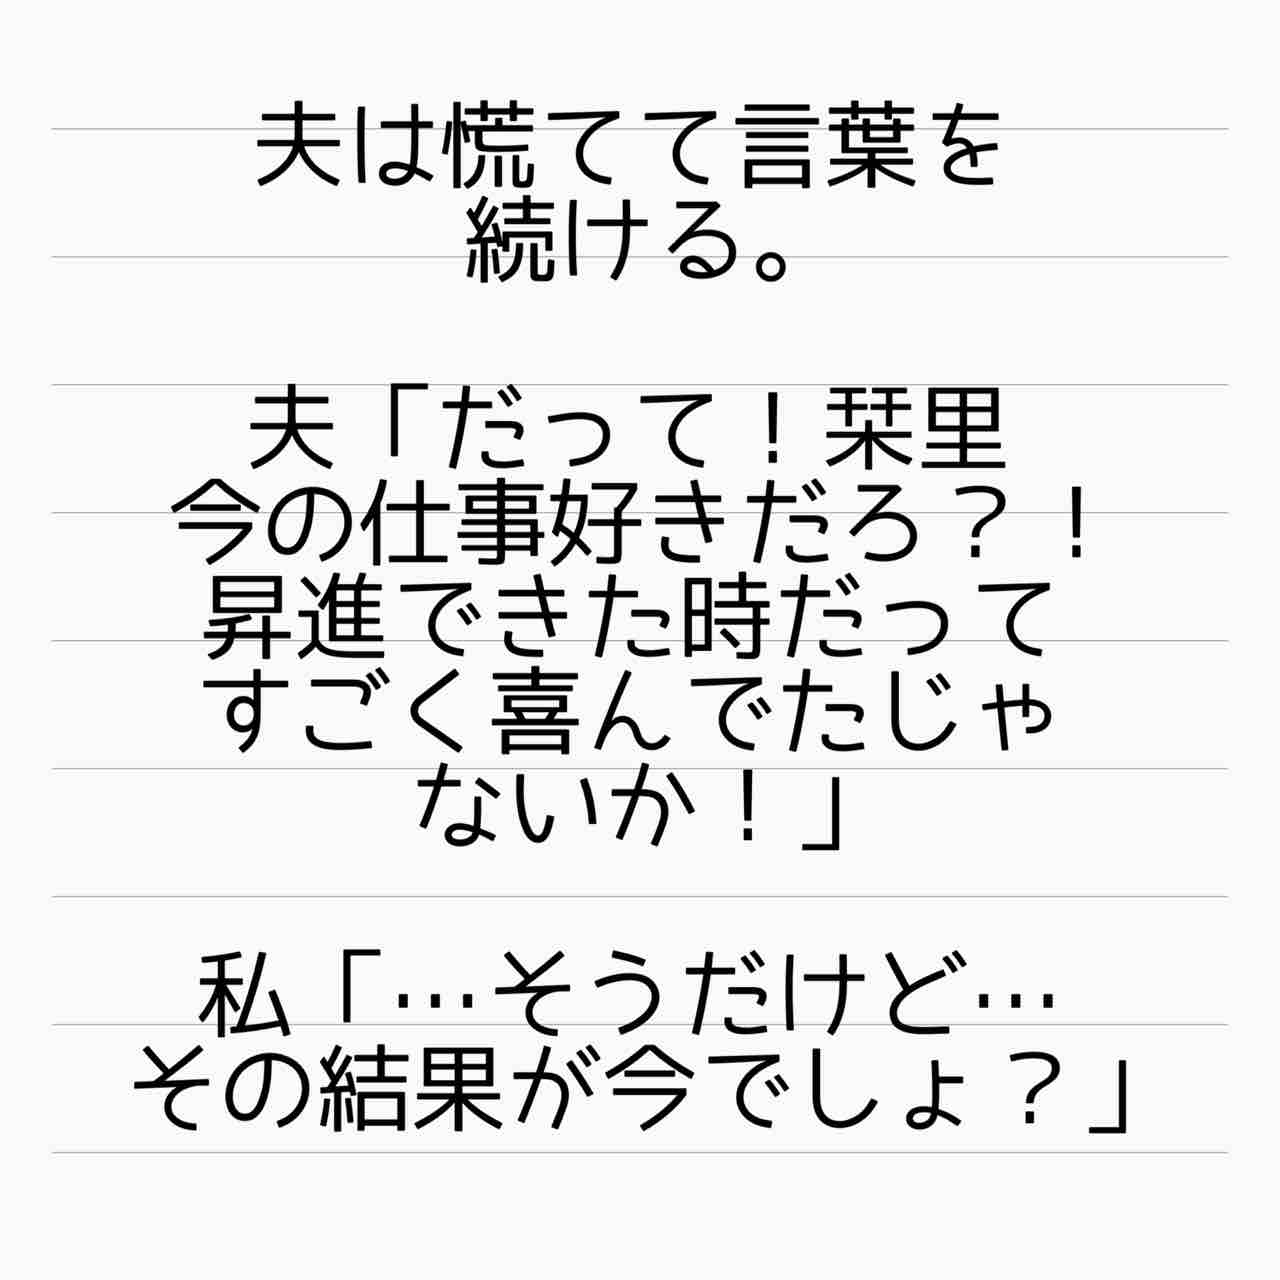 夫は慌てて言葉を
続ける。
夫「だって！栞里
今の仕事好きだろ？！
昇進できた時だって
すごく喜んでたじゃ
ないか！」
私「…そうだけど…
その結果が今でしょ？」